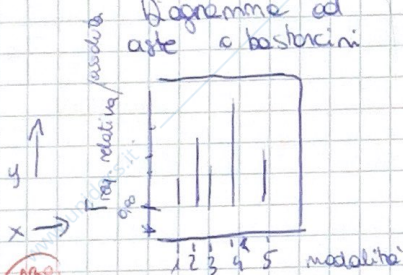 Diagramma ad
aste o bastoncini
Freq relativa/assoluta
y
x
0,00
1 2 3 4 5 modalità